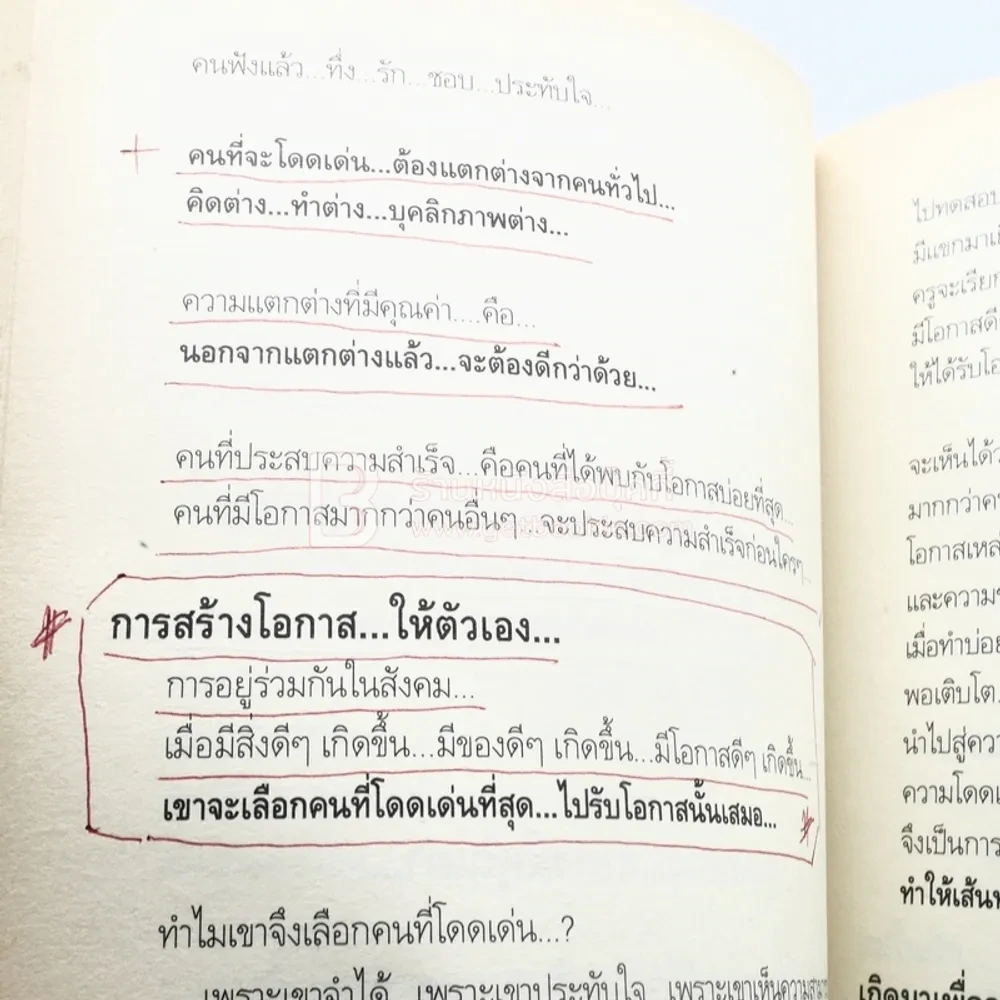 คนฟังแล้ว...ทึ่ง...รัก...ชอบ...ประทับใจ...
คนที่จะโดดเด่น...ต้องแตกต่างจากคนทั่วไป...
คิดต่าง...ทำต่าง...บุคลิกภาพต่าง...
ความแตกต่างที่มีคุณค่า....คือ...
นอกจากแตกต่างแล้ว...จะต้องดีกว่าด้วย...
คนที่ประสบความสำเร็จ...คือคนที่ได้พบกับโอกาสบ่อยที่สุด...
คนที่มีโอกาสมากกว่าคนอื่นๆ...จะประสบความสำเร็จก่อนใครๆ...
การสร้างโอกาส...ให้ตัวเอง...
การอยู่ร่วมกันในสังคม...
เมื่อมีสิ่งดีๆ เกิดขึ้น...มีของดีๆ เกิดขึ้น...มีโอกาสดีๆ เกิดขึ้น...
เขาจะเลือกคนที่โดดเด่นที่สุด...ไปรับโอกาสนั้นเสมอ...
ทำไมเขาจึงเลือกคนที่โดดเด่น...?
เพราะเขาจำได้ เพราะเขาประทับใจ เพราะเขาเห็น
ไปทดสอบ
มีแขกมา
ครูจะเรียก
มีโอกาสดี
ให้ได้รับ
จะเห็นได้
มากกว่า
โอกาสเหล่
และความ
เมื่อทำบ่อย
พอเติบโต
นำไปสู่
ความโดด
จึงเป็นการ
ทำให้เส้น